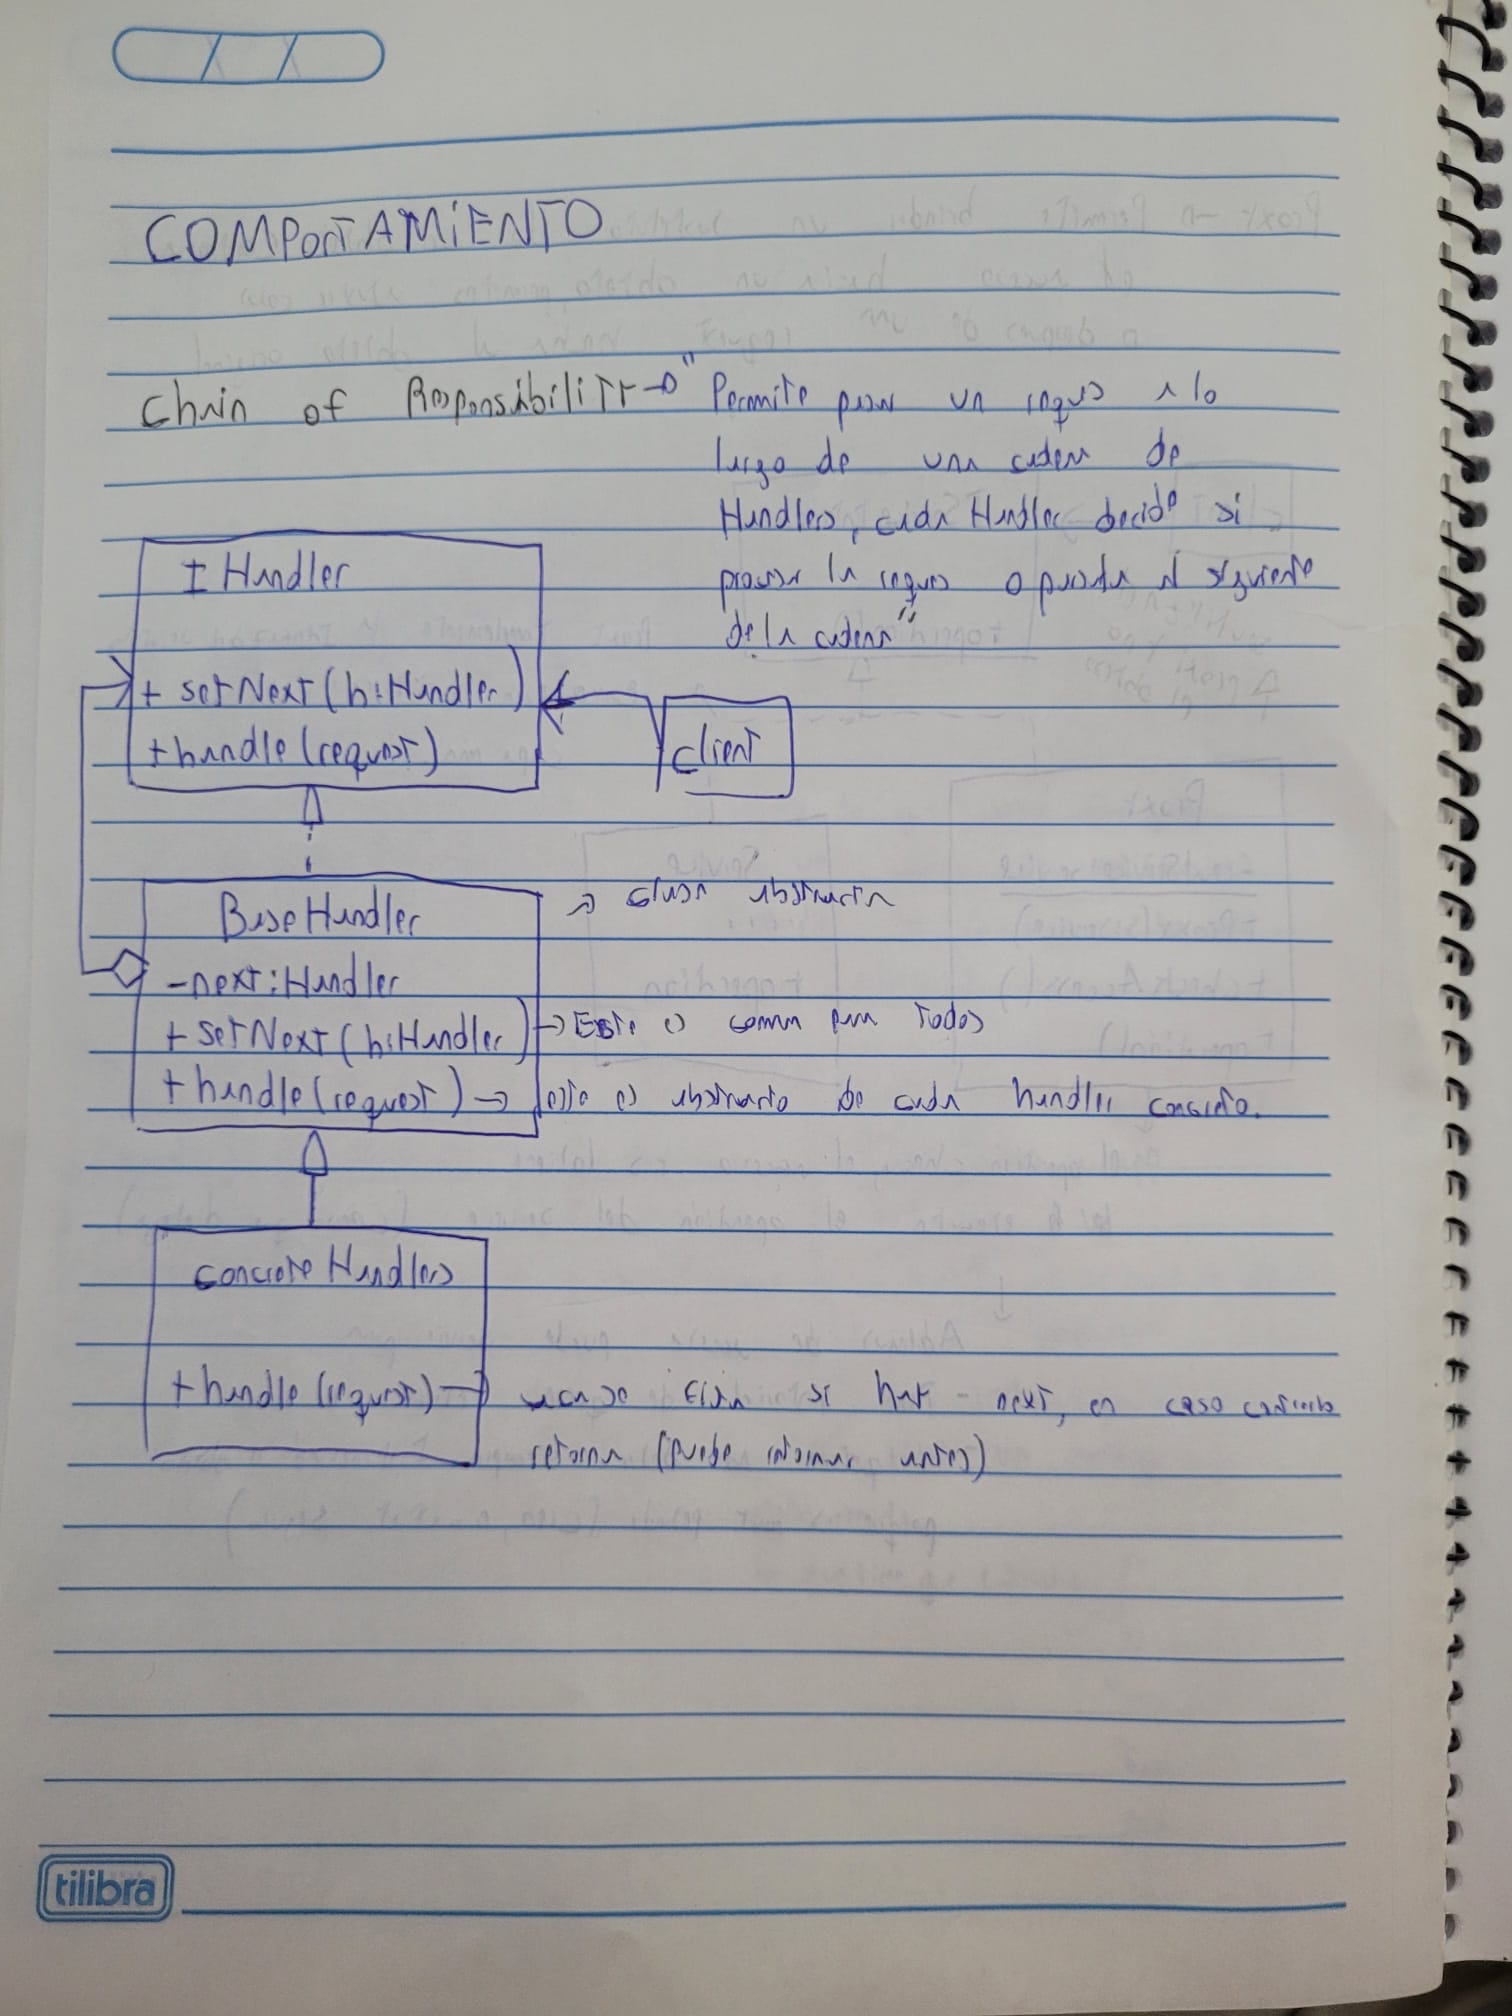 COMPORTAMIENTO
Chain of Responsibility → "Permite pasar un reques a lo
largo de una cadena de
Handlers, cada Handler decide si
procesar la reques o pasarla al siguiente
de la cadena"
I Handler
+ setNext(h:Handler)
+ handle(request)
Client
BaseHandler → clase abstracta
- next:Handler
+ setNext(h:Handler) → Este es comun para todos
+ handle(request) → este es abstracto de cada handler concreto.
Concrete Handlers
+ handle(request) → si hay next, en caso contrario
retorna (puede retornar antes)
tilibra